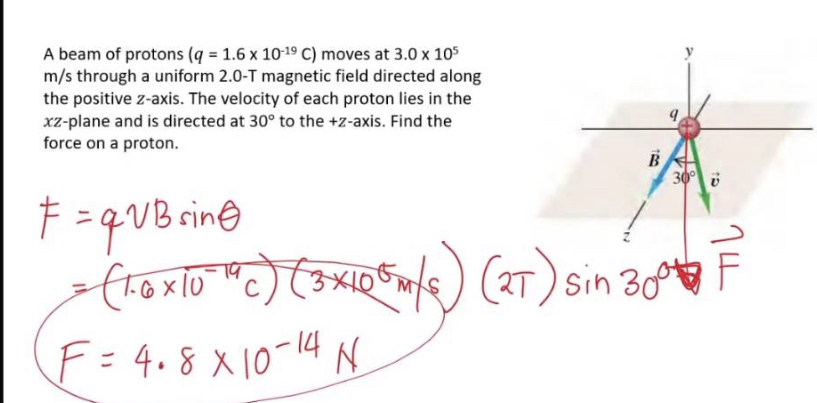 A beam of protons (q = 1.6 x 10⁻¹⁹ C) moves at 3.0 x 10⁵
m/s through a uniform 2.0-T magnetic field directed along
the positive z-axis. The velocity of each proton lies in the
xz-plane and is directed at 30° to the +z-axis. Find the
force on a proton.
y
q
+
B⃗
30°
v⃗
z
F = qVB sinθ
= (1.6 x 10⁻¹⁹ C) (3 x 10⁵ m/s) (2T) sin 30°
F⃗
F = 4.8 X 10⁻¹⁴ N